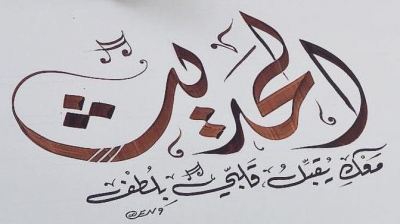 الحديث
معك يُقبّلُ قلبي بِلُطف